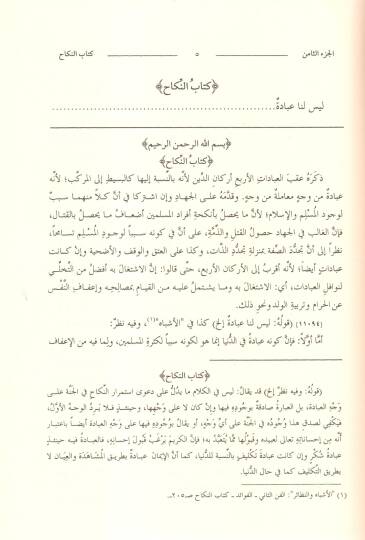 الجزء الثامن ــــــــــــ ٥ ــــــــــــ كتاب النكاح
﴿كتابُ النّكاح﴾
ليس لنا عبادةٌ........................................................
﴿بسم الله الرحمن الرحيم﴾
﴿كتابُ النّكاح﴾
ذكَرَهُ عقبَ العباداتِ الأربعِ أركانِ الدِّين لأنّه بالنسبة إليها كالبسيطِ إلى المركّب؛ لأنّه
عبادةٌ من وجهٍ معاملةٌ من وجهٍ، وقدّمَهُ على الجهادِ وإن اشتركا في أنَّ كلاًّ منهما سببٌ
لوجودِ المُسْلِم والإسلام؛ لأنَّ ما يحصلُ بأنكحةِ أفراد المسلمين أضعافُ ما يحصلُ بالقتال،
فإنَّ الغالب في الجهاد حصولُ القتلِ والذِّمَّةِ، على أنَّ في كونه سبباً لوجودِ المُسْلِم تسامحاً،
نظراً إلى أنَّ تجدُّدَ الصِّفة بمنزلةِ تجدُّدِ الذَّات، وكذا على العتق والوقف والأضحية وإنْ كانت
عباداتٍ أيضاً؛ لأنّه أقربُ إلى الأركان الأربع، حتى قالوا: إنَّ الاشتغالَ به أفضلُ من التَّخلِّي
لنوافلِ العبادات، أي: الاشتغالُ به وما يشتملُ عليه من القيامِ بمصالِحِه وإعفافِ النَّفْس
عن الحرام وتربيةِ الولد ونحوِ ذلك.
[١١٠٩٤] (قولُهُ: ليس لنا عبادةٌ إلخ) كذا في "الأشباه"(١)، وفيه نظرٌ:
أمَّا أوَّلاً: فإنَّ كونه عبادةً في الدُّنيا إنما هو لكونه سبباً لكثرةِ المسلمين، ولِما فيه من الإعفافِ
﴿كتاب النكاح﴾
(قولُهُ: وفيه نظرٌ إلخ) قد يقالُ: ليس في الكلامِ ما يدُلُّ على دعوى استمرارِ النّكاح في الجنّة على
وَجْهِ العبادة، بل العبارةُ صادقةٌ بوجُودِهِ فيها وإن كان لا على وَجْهِها، وحينئذٍ فلا يَرِدُ الوجهُ الأوَّلُ،
فيَكْفِي لصدقِ هذا وُجُودُه في الجنّة على أيِّ وَجْهٍ، أو يقالُ بوجُودِه فيها على وَجْهِ العبادة أيضاً باعتبارِ
أنّه من إحساناتِهِ تعالى لعبيده وقَبولُها ممَّا يُتَعبَّد به؛ فإنَّ الكريمَ يَرغَبُ قَبولَ إحسانِهِ، فالعبادة فيه حينئذٍ
عبادةُ شُكْرٍ وإن كانت عبادةَ تكليفٍ بالنّسبة للدُّنيا، كما أنَّ الإيمان عبادةٌ بطريقِ المُشَاهَدَة والعِيَان لا
بطريقِ التَّكليف كما في حال الدُّنيا.
(١) "الأشباه والنظائر": الفن الثاني - الفوائد - كتاب النكاح صـ٢٠٥ـ.